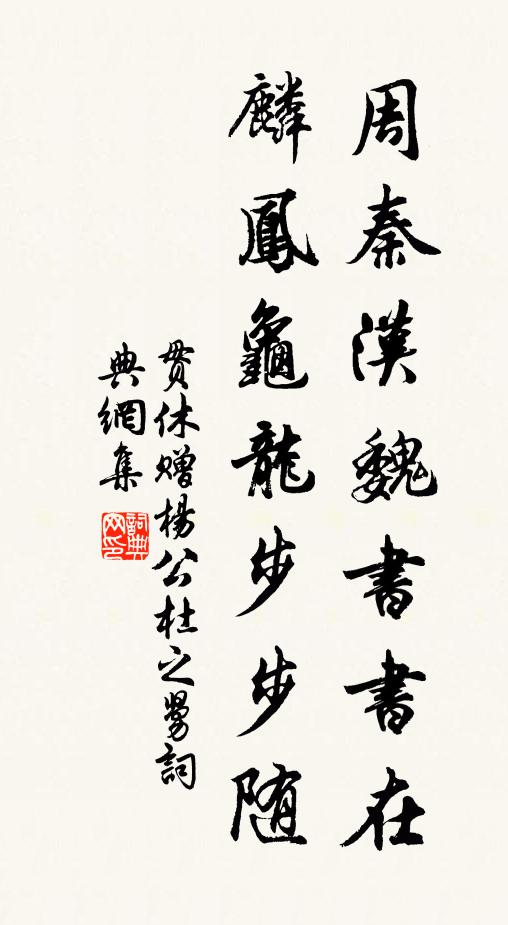 周秦漢魏書書在
麟鳳龜龍步步隨
貫休贈楊公杜之舅詞
典網集
詞典网印